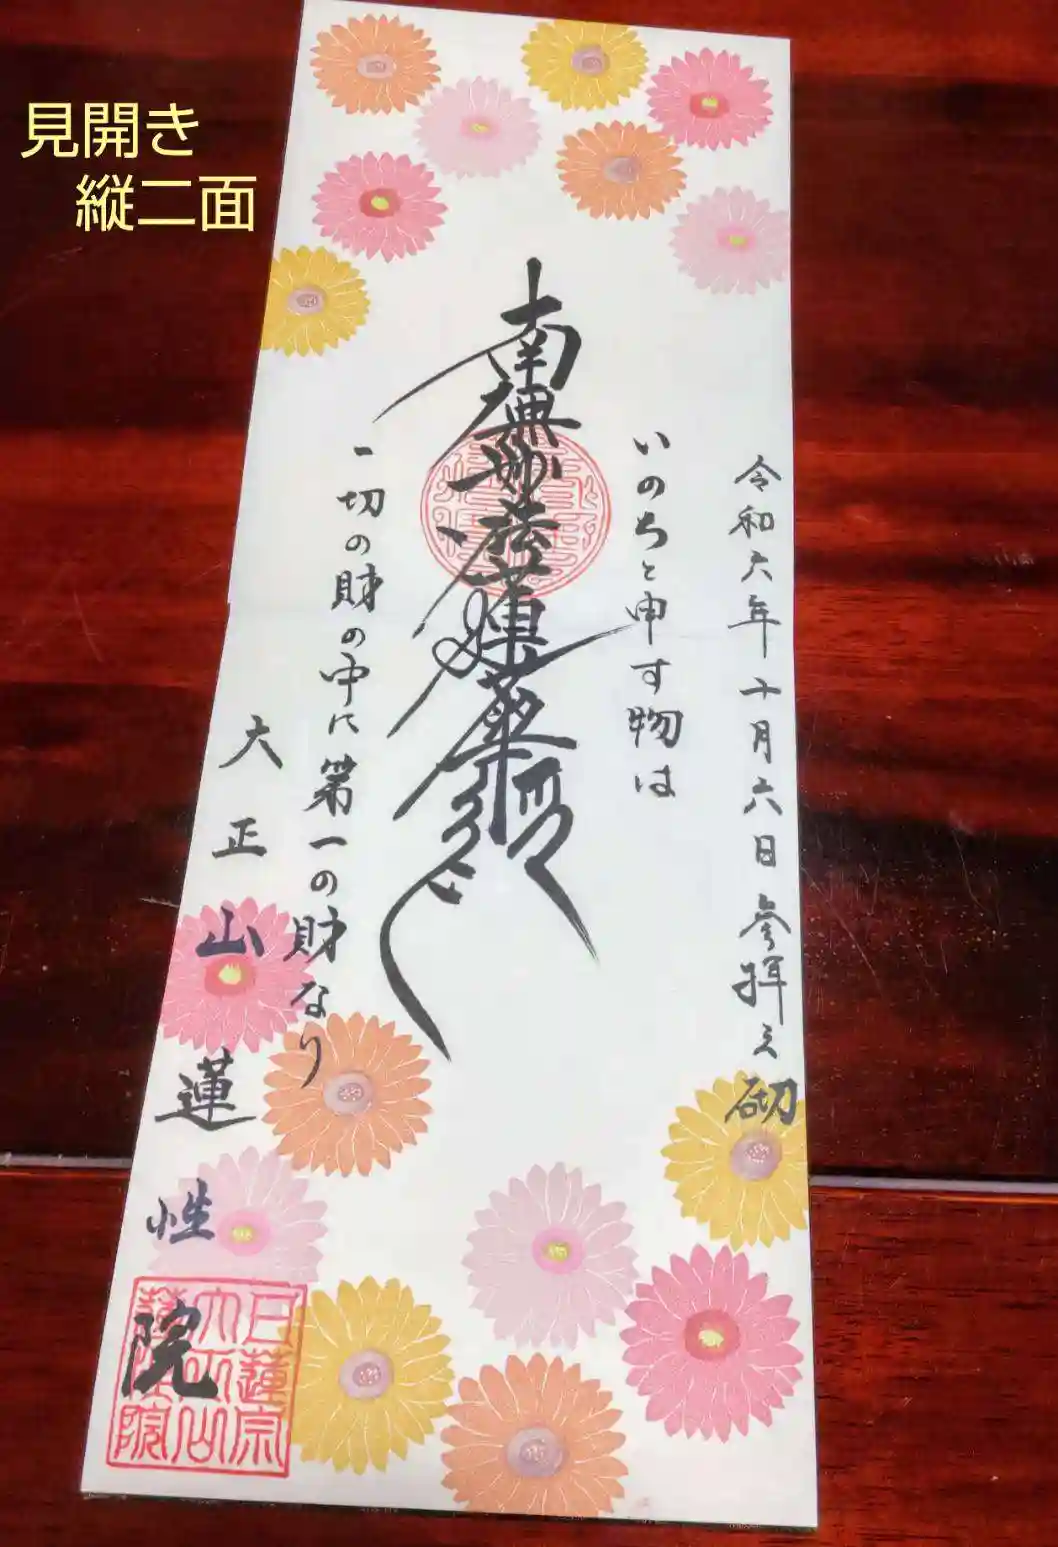 見開き
縦二面
令和六年十月六日参拝之砌
いのちと申す物は
南無妙法蓮華経
一切の財の中に第一の財なり
大正山蓮性院
日蓮宗
大正山
蓮性院